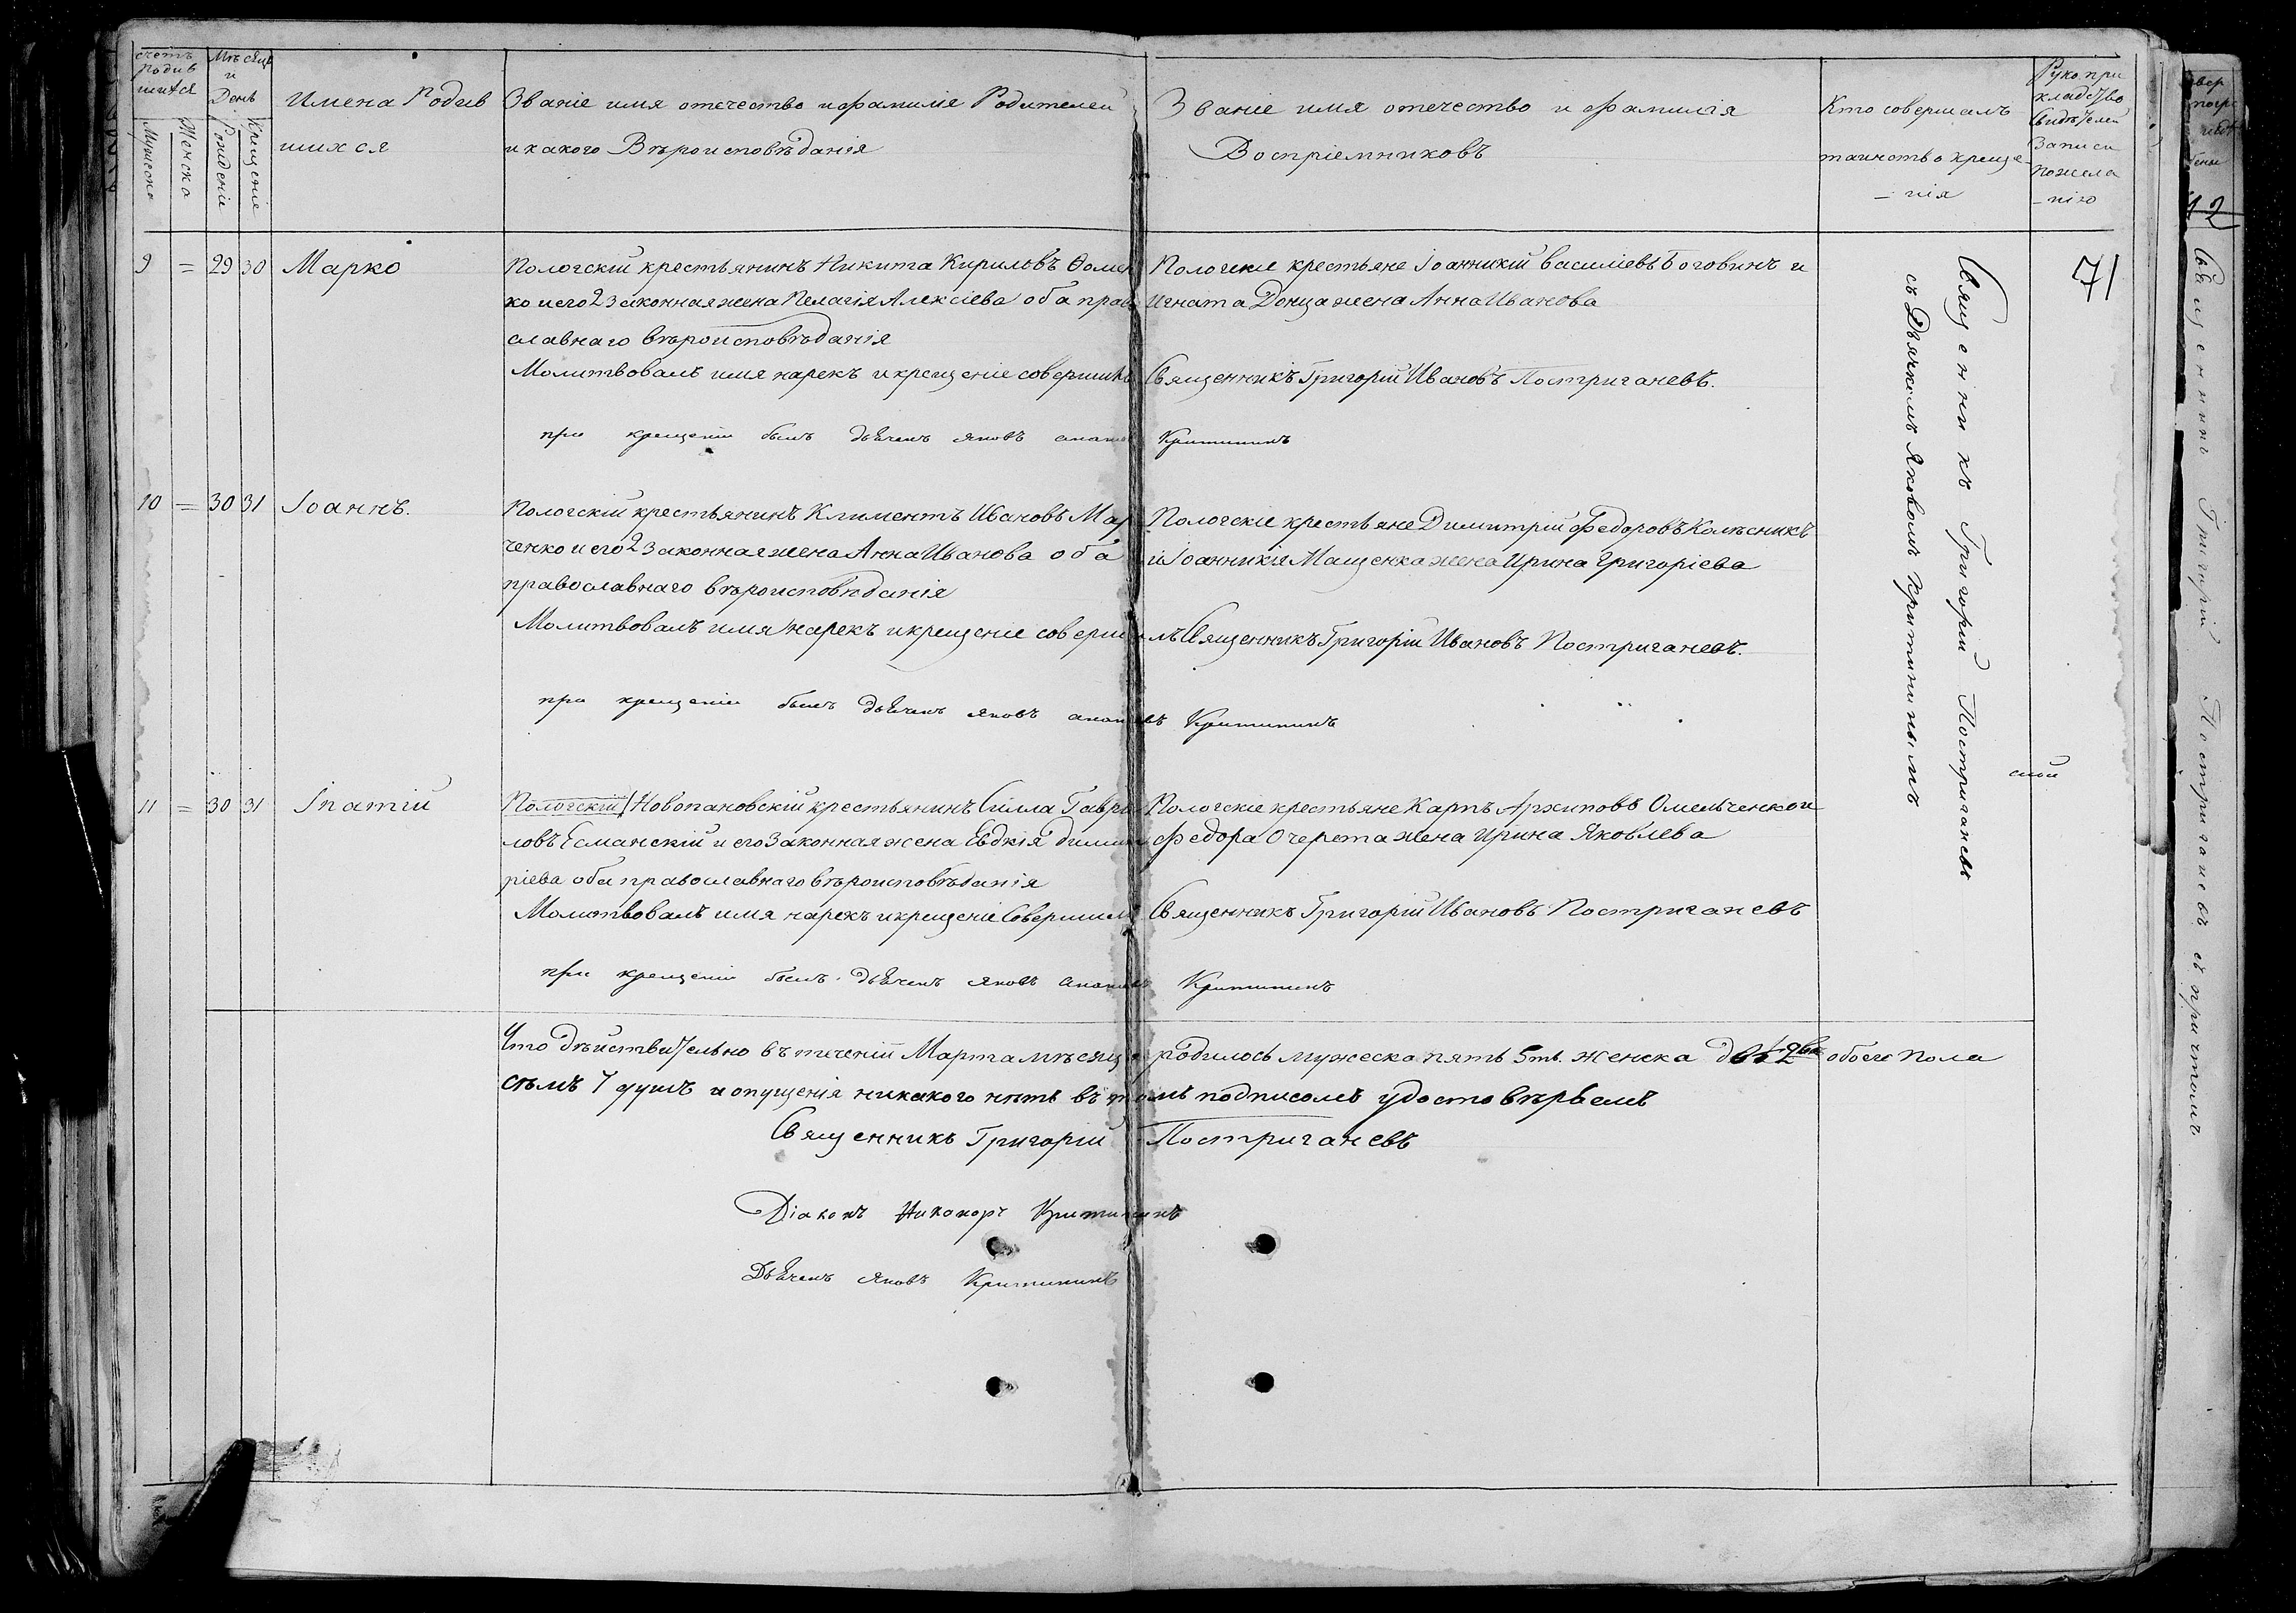 счетъ родив шихся
Мужеска
Женска
Мѣсяцъ и День
Рождение
Крещение
Имена Родив
шихся
Званіе имя отечество и фамиліе Родителей
и какого Вѣроисповѣданія
Званіе имя отечество и фамилія
Воспріемниковъ
Кто совершалъ
таинство креще
– нія
Рукопри
кладство
Свидѣтелей
Записи
пожела
– нію
71
9 = 29 30 Марко
Пологскій крестьянинъ Никита Кириловъ Ѳомен
ко и его 2 законная жена Пелагія Алексіева оба прав
славнаго вѣроисповѣданія
Молитвовалъ имя нарекъ и крещеніе совершилъ
при крещеніи былъ дьячекъ Яковъ
Пологскіе крестьяне Іоанникій Василіевъ Боговинъ и
Игната Донца жена Анна Иванова
Священникъ Григорій Ивановъ Постриганевъ.
Критининъ
10 = 30 31 Іоаннъ.
Пологскій крестьянинъ Климентъ Ивановъ Мар
ченко и его 2 законная жена Анна Иванова оба
православнаго вѣроисповѣданія
Молитвовалъ имя нарекъ и крещеніе соверши
при крещеніи былъ дьячекъ Яковъ
Пологскіе крестьяне Димитрій Федоровъ Колѣсникъ
и Іоанникія Мащенка жена Ирина Григоріева
лъ Священникъ Григорій Ивановъ Постриганевъ.
Критининъ
11 = 30 31 Іпатій
Пологскій Новопановскій крестьянинъ Силла Гаври
ловъ Есманскій и его Законная жена Евдкія Димит
ріева оба православнаго вѣроисповѣданія
Молитвовалъ имя нарекъ и крещеніе Совершилъ
при крещеніи былъ дьячекъ Яковъ
Пологскіе крестьяне Карпъ Архиповъ Омельченко и
Федора Очерета жена Ирина Яковлева
Священникъ Григорій Ивановъ Постриганевъ
Критининъ
Священникъ Григорій Постриганевъ
съ Дьячкомъ Яковомъ Критининымъ
Что дѣйствительно въ теченіи Марта мѣсяца родилось мужеска пять 5ть женска двѣ 2ве обоего пола
сѣмъ 7 душъ и опущенія никакого нѣтъ въ томъ подписомъ удостовѣрвемъ
Священникъ Григорій Постриганевъ
Діаконъ Никаноръ Критининъ
Дьячекъ Яковъ Критининъ
12
Священникъ Григорій Постриганевъ съ причтомъ